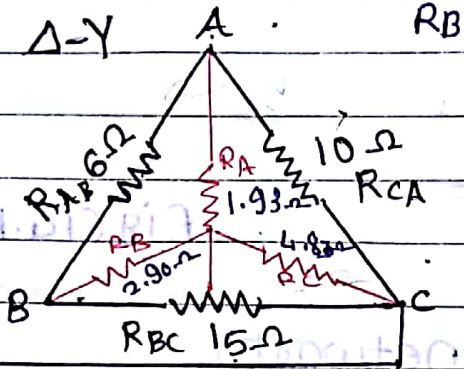 Δ-Y
A
RB
6Ω
RAB
10Ω
RCA
RA
1.93Ω
RB
2.90Ω
RC
B
C
RBC 15Ω